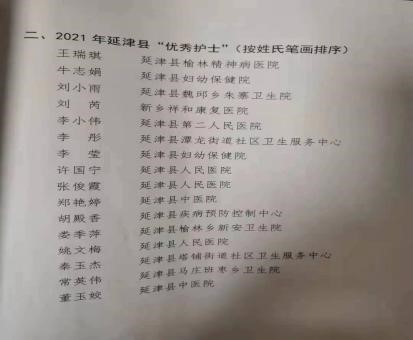 二、2021年延津县“优秀护士”(按姓氏笔画排序)
王瑞琪 延津县榆林精神病医院
牛志娟 延津县妇幼保健院
刘小雨 延津县魏邱乡朱寨卫生院
刘 芮 新乡祥和康复医院
李小伟 延津县第二人民医院
李 彤 延津县潭龙街道社区卫生服务中心
李 莹 延津县妇幼保健院
许国宁 延津县人民医院
张俊霞 延津县人民医院
郑艳婷 延津县中医院
胡殿香 延津县疾病预防控制中心
娄季萍 延津县榆林乡新安卫生院
姚文梅 延津县人民医院
秦玉杰 延津县塔铺街道社区卫生服务中心
常英伟 延津县马庄班枣乡卫生院
董玉姣 延津县中医院